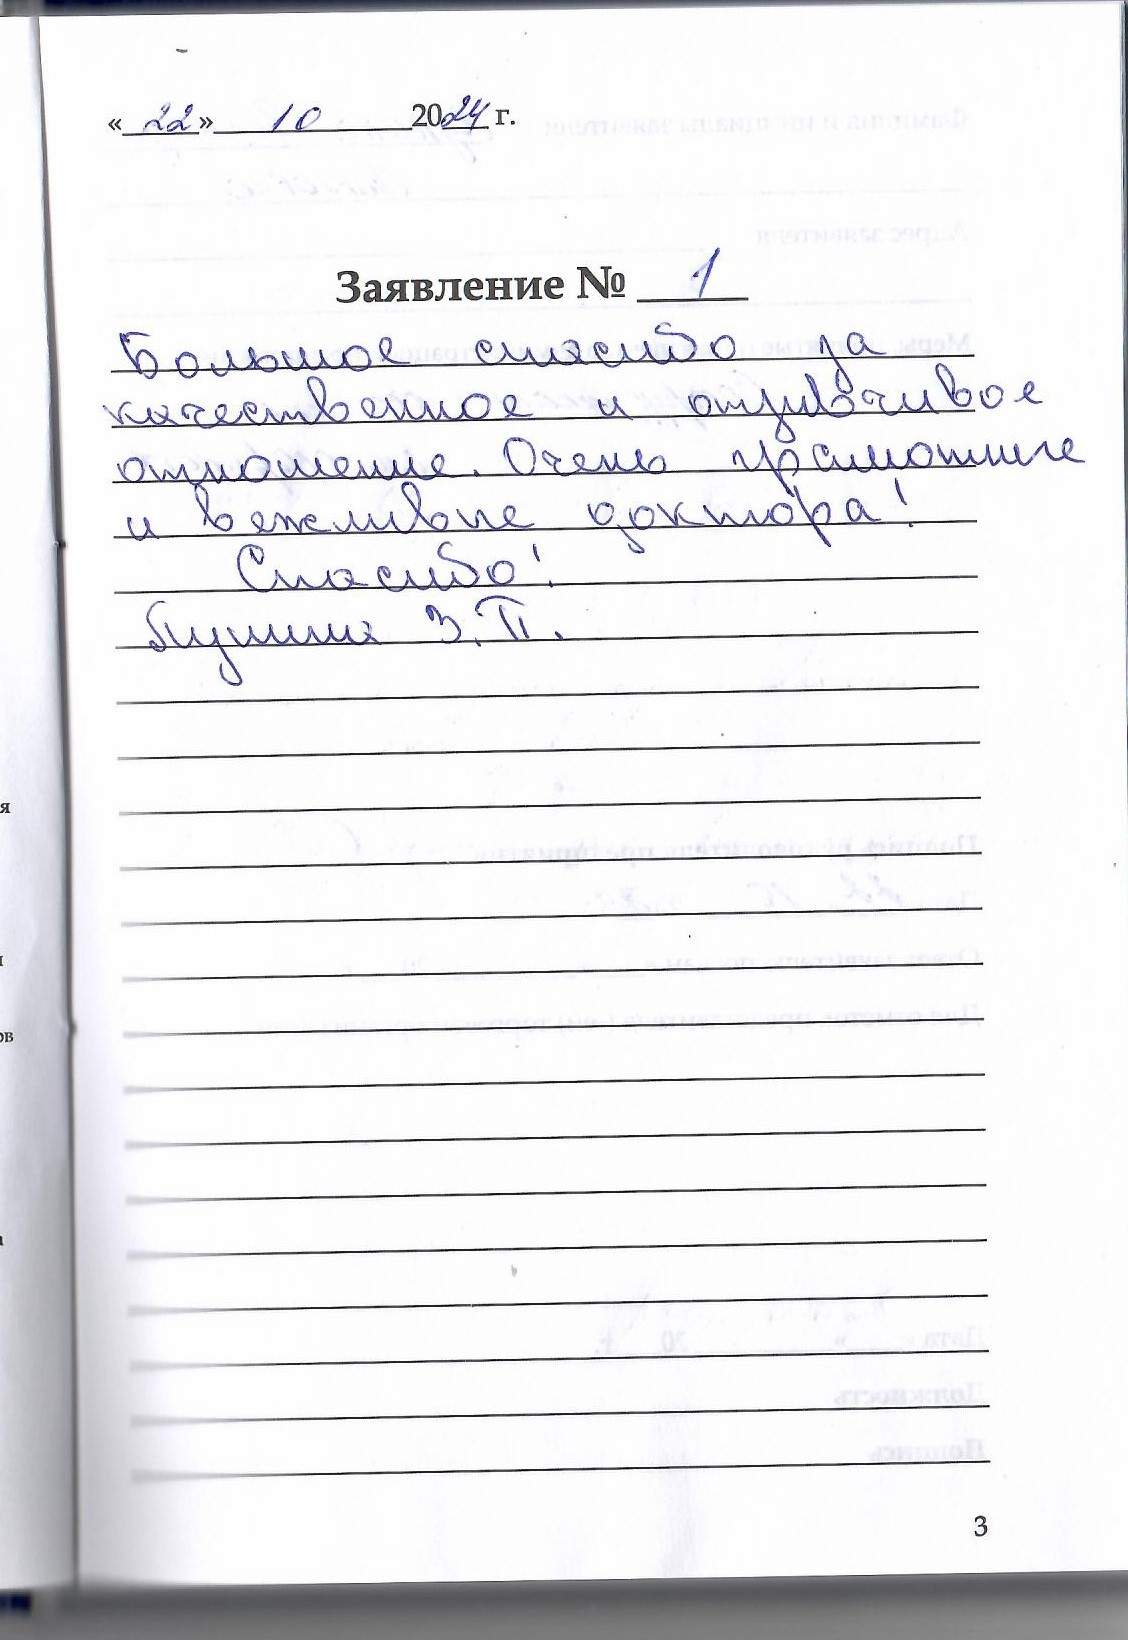 «22» 10 2024 г.
Заявление № 1
Большое спасибо за
качественное и отзывчивое
отношение. Очень грамотные
и вежливые доктора!
Спасибо!
З.П.
3